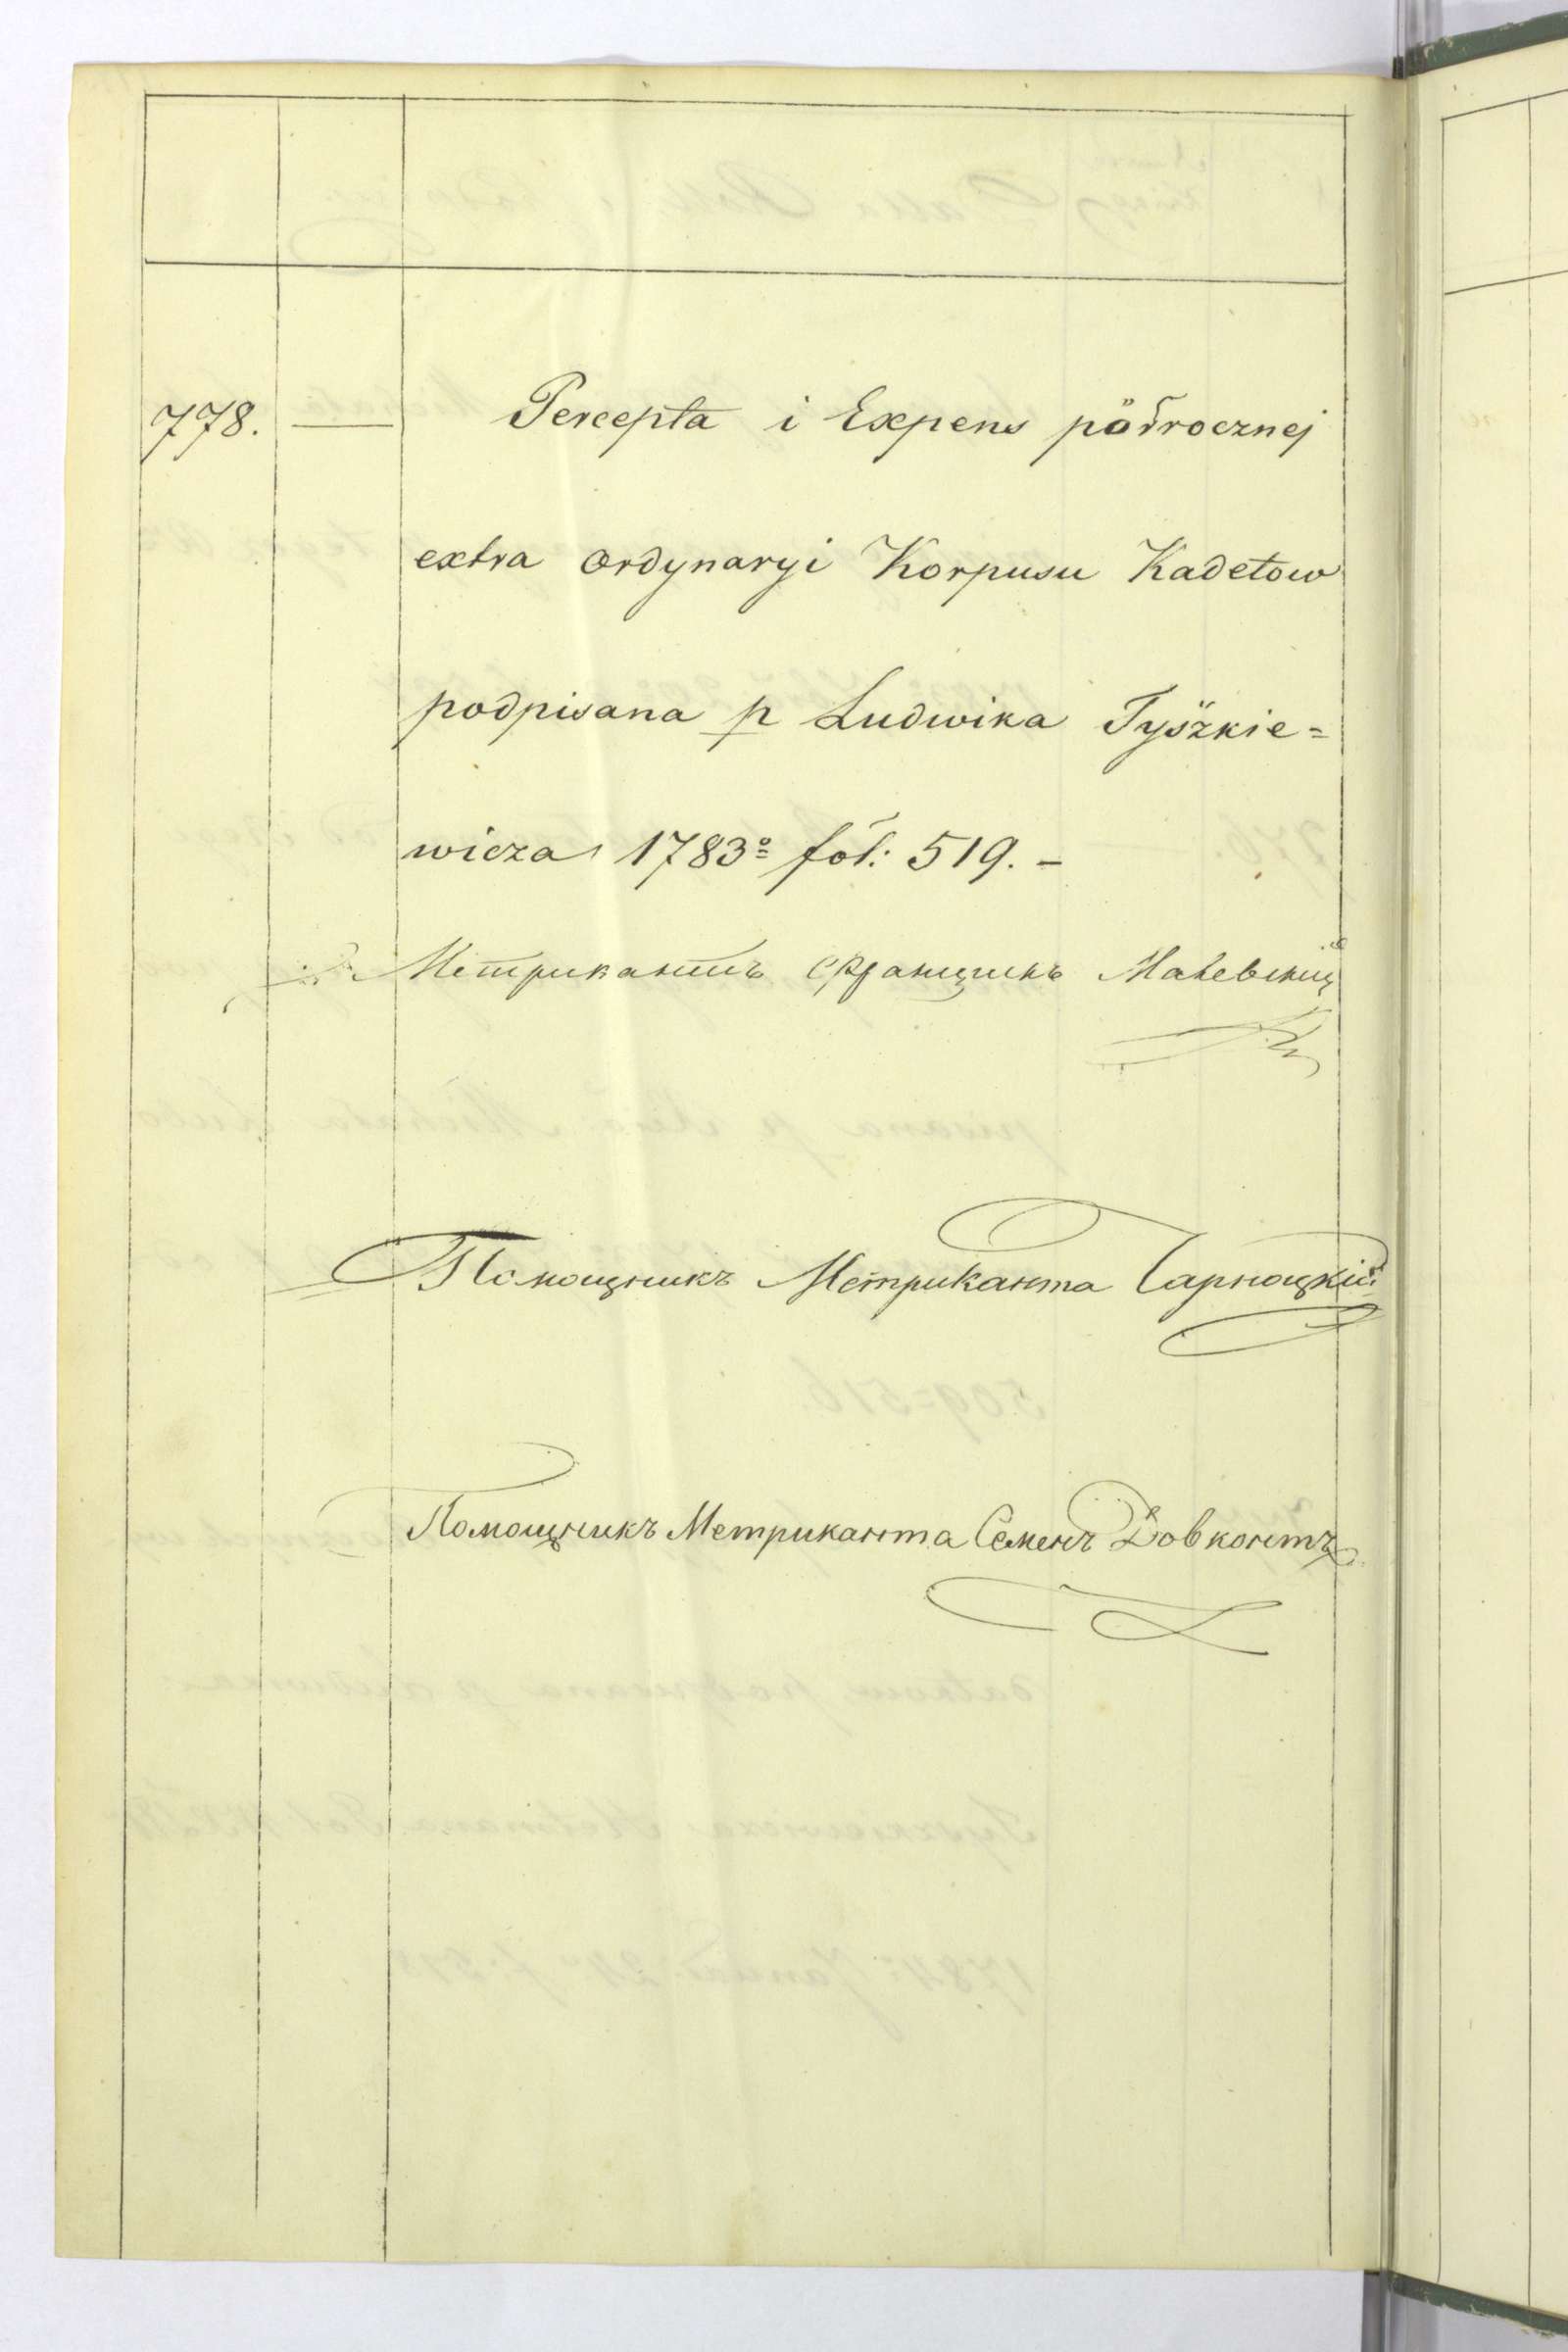 778. — Percepta i Expens półrocznej
extra ordynaryi Korpusu Kadetow
podpisana p Ludwika Tyszkie=
wicza 1783º fol: 519. –
Метрикантъ Францишкъ Малевскій
Помощникъ Метриканта Чарноцкій
Помощникъ Метриканта Семенъ Довконтъ